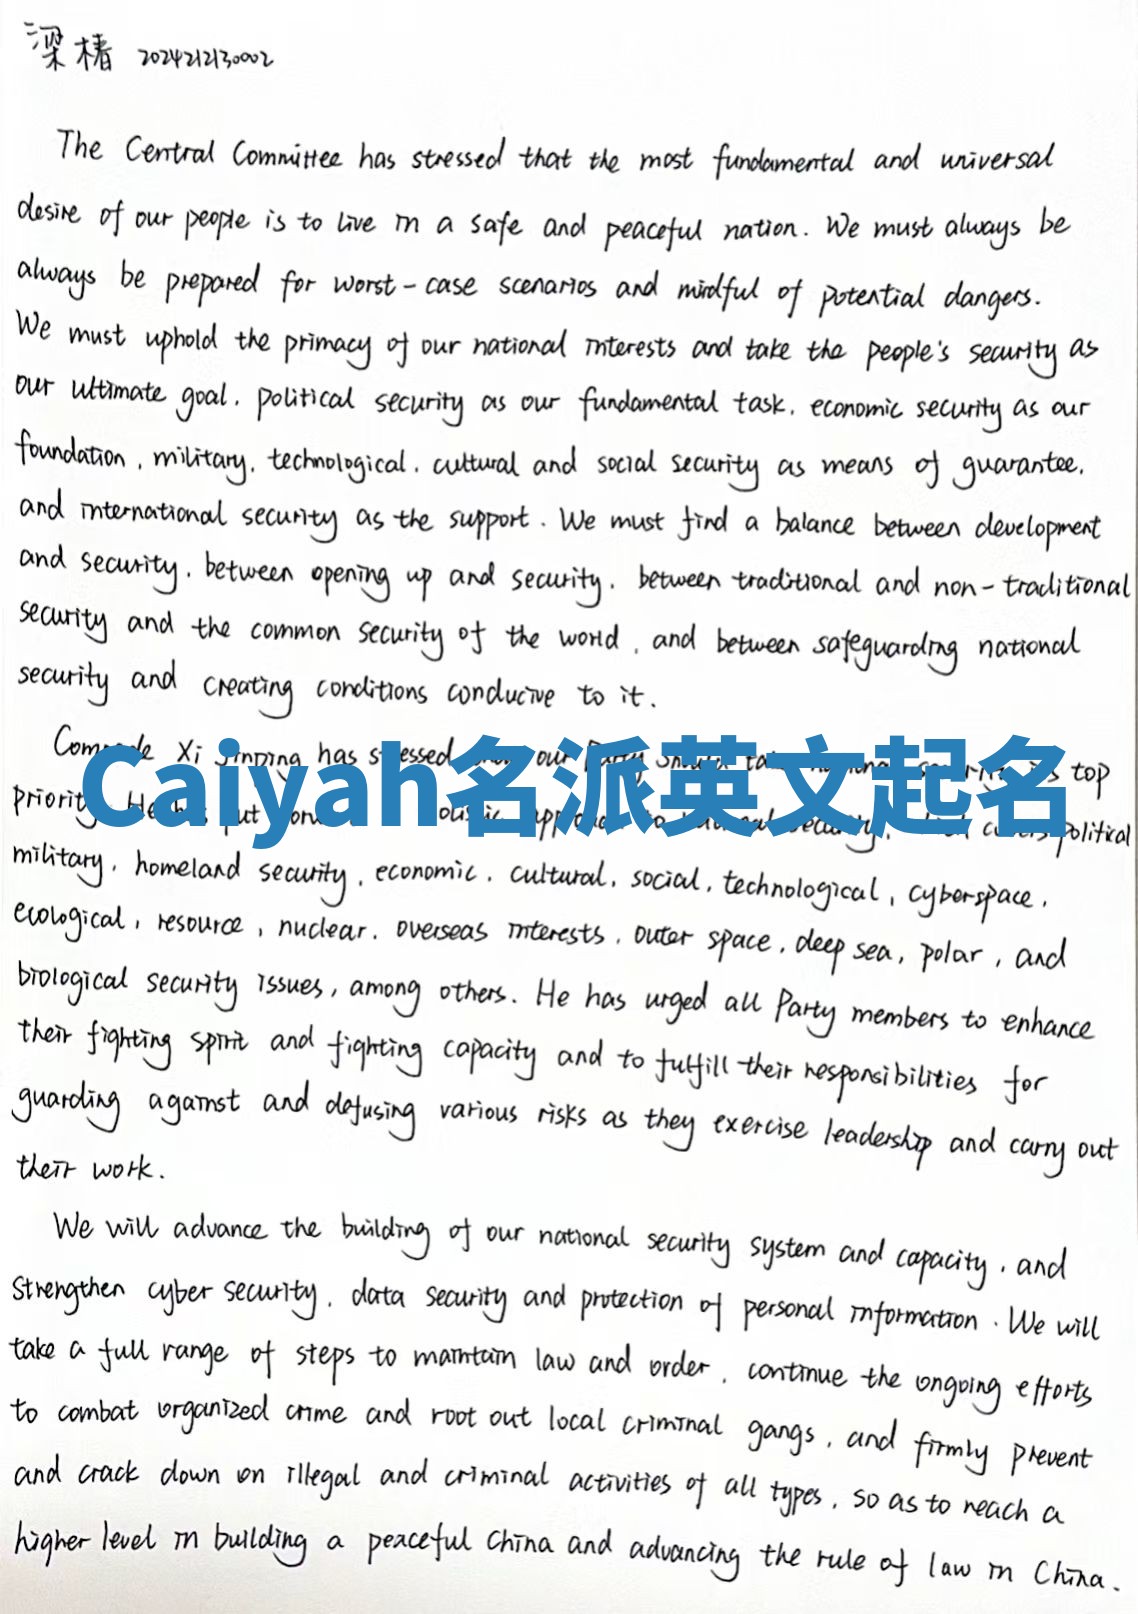 梁椿 2024212130002
The Central Committee has stressed that the most fundamental and universal
desire of our people is to live in a safe and peaceful nation. We must always be
always be prepared for worst-case scenarios and mindful of potential dangers.
We must uphold the primacy of our national interests and take the people's security as
our ultimate goal, political security as our fundamental task, economic security as our
foundation, military, technological, cultural and social security as means of guarantee,
and international security as the support. We must find a balance between development
and security, between opening up and security, between traditional and non-traditional
security and the common security of the world, and between safeguarding national
security and creating conditions conducive to it.
Xi Jinping has stressed our Party top
Caiyah名派英文起名
priority. He put to political
military, homeland security, economic, cultural, social, technological, cyberspace,
ecological, resource, nuclear, overseas interests, outer space, deep sea, polar, and
biological security issues, among others. He has urged all Party members to enhance
their fighting spirit and fighting capacity and to fulfill their responsibilities for
guarding against and defusing various risks as they exercise leadership and carry out
their work.
We will advance the building of our national security system and capacity, and
strengthen cyber security, data security and protection of personal information. We will
take a full range of steps to maintain law and order, continue the ongoing efforts
to combat organized crime and root out local criminal gangs, and firmly prevent
and crack down on illegal and criminal activities of all types, so as to reach a
higher level in building a peaceful China and advancing the rule of law in China.